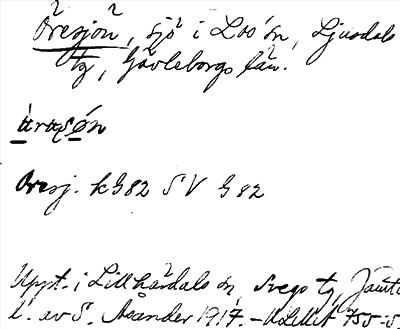 Öresjön, sjö i Los sn, Ljusdals
tg, Gävleborgs län.
Öresj. kG82 SV G82
Uppt. i Lillhärdals sn, Svegs tg, Jämtl
l. av S. Åsander 1917. –